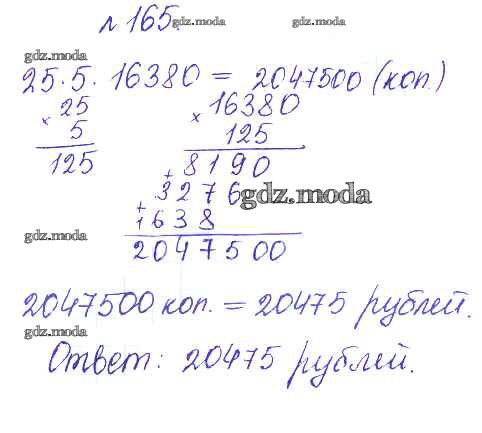 № 165.
gdz.moda
gdz.moda
25 · 5 · 16380 = 2047500 (коп.)
× 25 × 16380
5 125
125 + 8190
+ 3276 gdz.moda
gdz.moda 1638
2047500
2047500 коп. = 20475 рублей.
gdz.moda
Ответ: 20475 рублей.